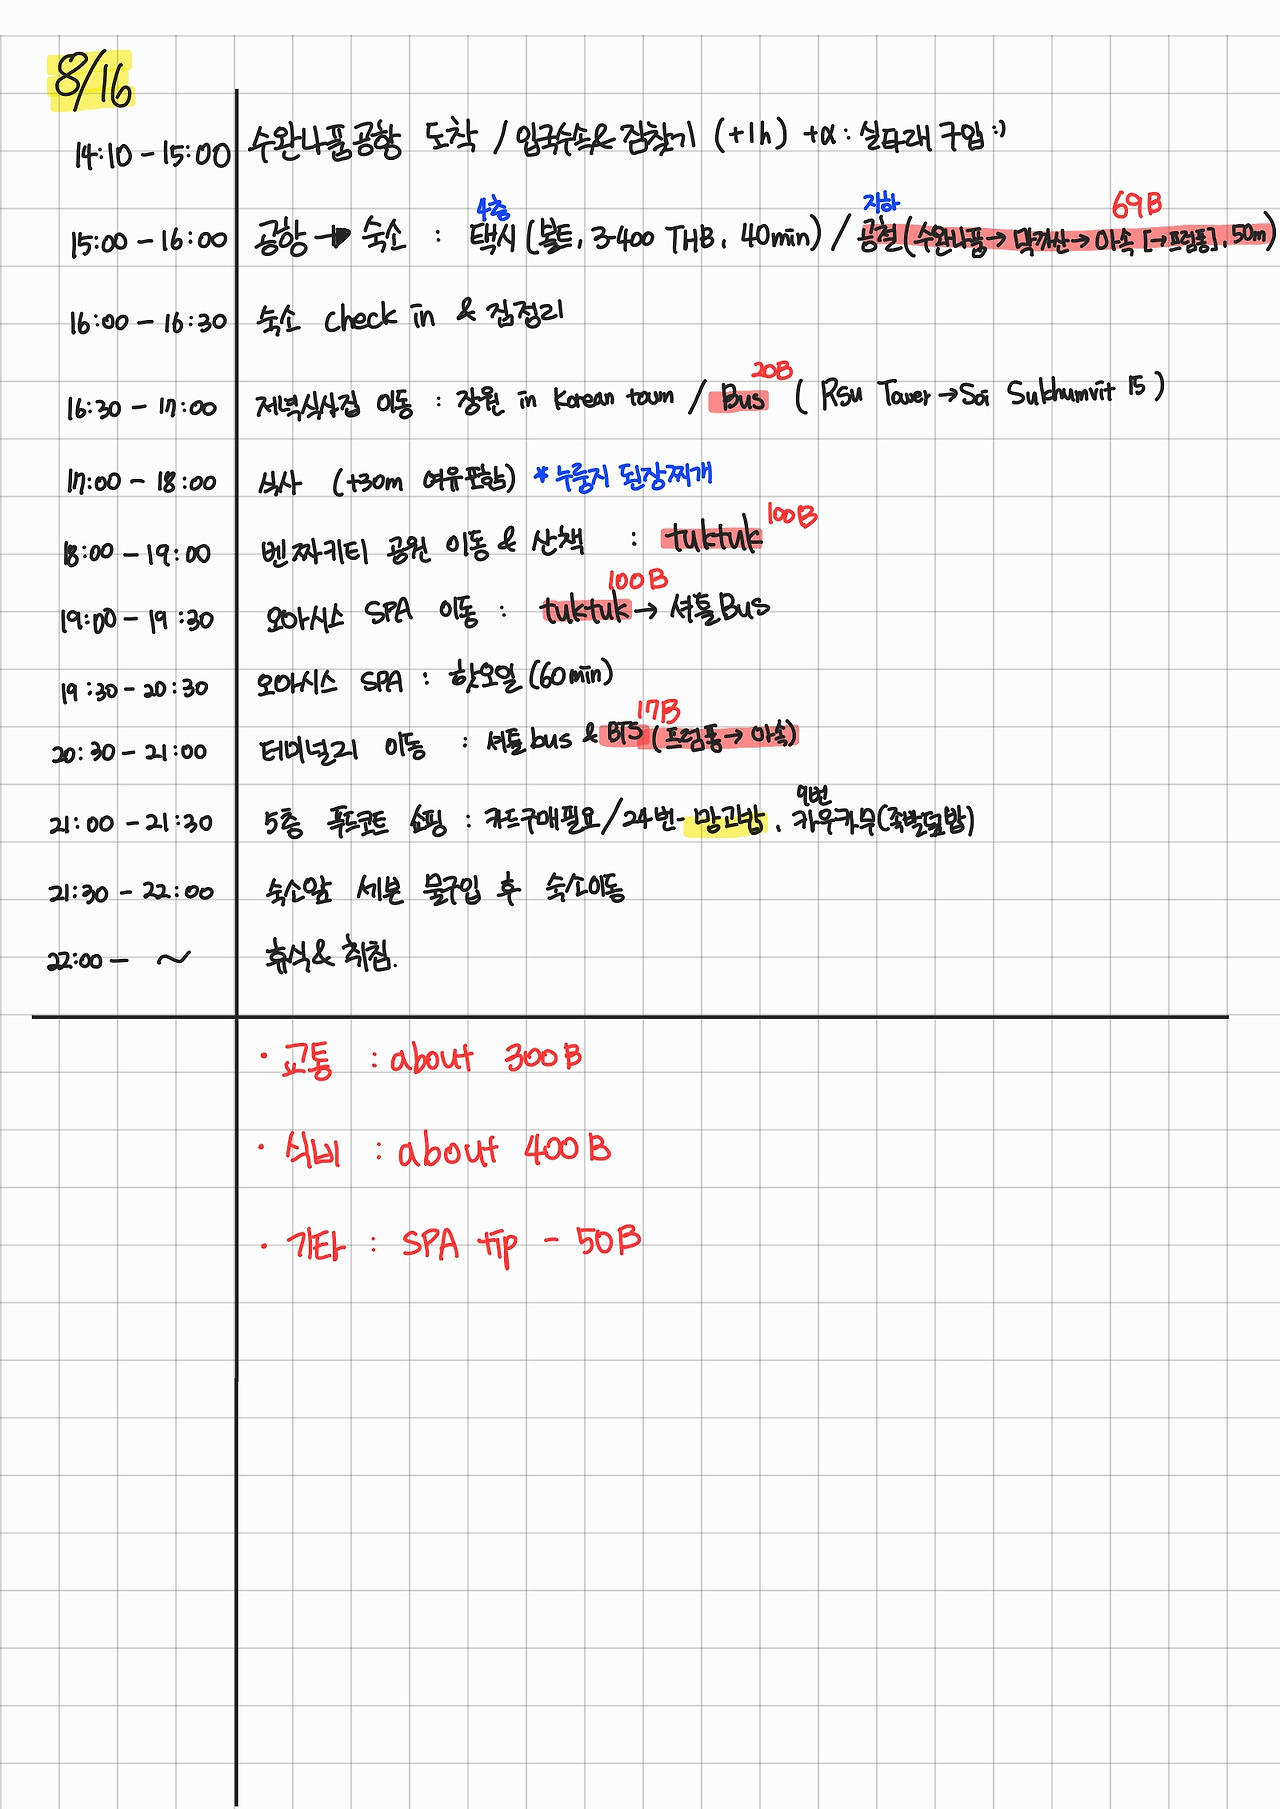 8/16
14:10 - 15:00 수완나품공항 도착 / 입국수속& 짐찾기 (+1h) +α : 실타래 구입 :)
4층 지하 69B
15:00 - 16:00 공항 → 숙소 : 택시 (볼트, 3-400 THB, 40min) / 공철 (수완나품→ 막까산→ 아속 [→프럼퐁], 50m)
16:00 - 16:30 숙소 check in & 짐정리
20B
16:30 - 17:00 저녁식사집 이동 : 장원 in Korean town / Bus ( RSU Tower →Soi Sukhumvit 15 )
17:00 - 18:00 식사 (+30m 여유포함) * 누룽지 된장찌개
100B
18:00 - 19:00 벤짜키티 공원 이동 & 산책 : tuktuk
100B
19:00 - 19:30 오아시스 SPA 이동 : tuktuk → 셔틀Bus
19:30 - 20:30 오아시스 SPA : 핫오일 (60min)
17B
20:30 - 21:00 터미널21 이동 : 셔틀bus & BTS (프럼퐁→ 아속)
9번
21:00 - 21:30 5층 푸드코트 쇼핑 : 카드구매필요/24번- 망고밥, 카우카무(족발덮밥)
21:30 - 22:00 숙소앞 세븐 물구입 후 숙소이동
22:00 - ~ 휴식& 취침.
· 교통 : about 300B
· 식비 : about 400B
· 기타 : SPA tip - 50B